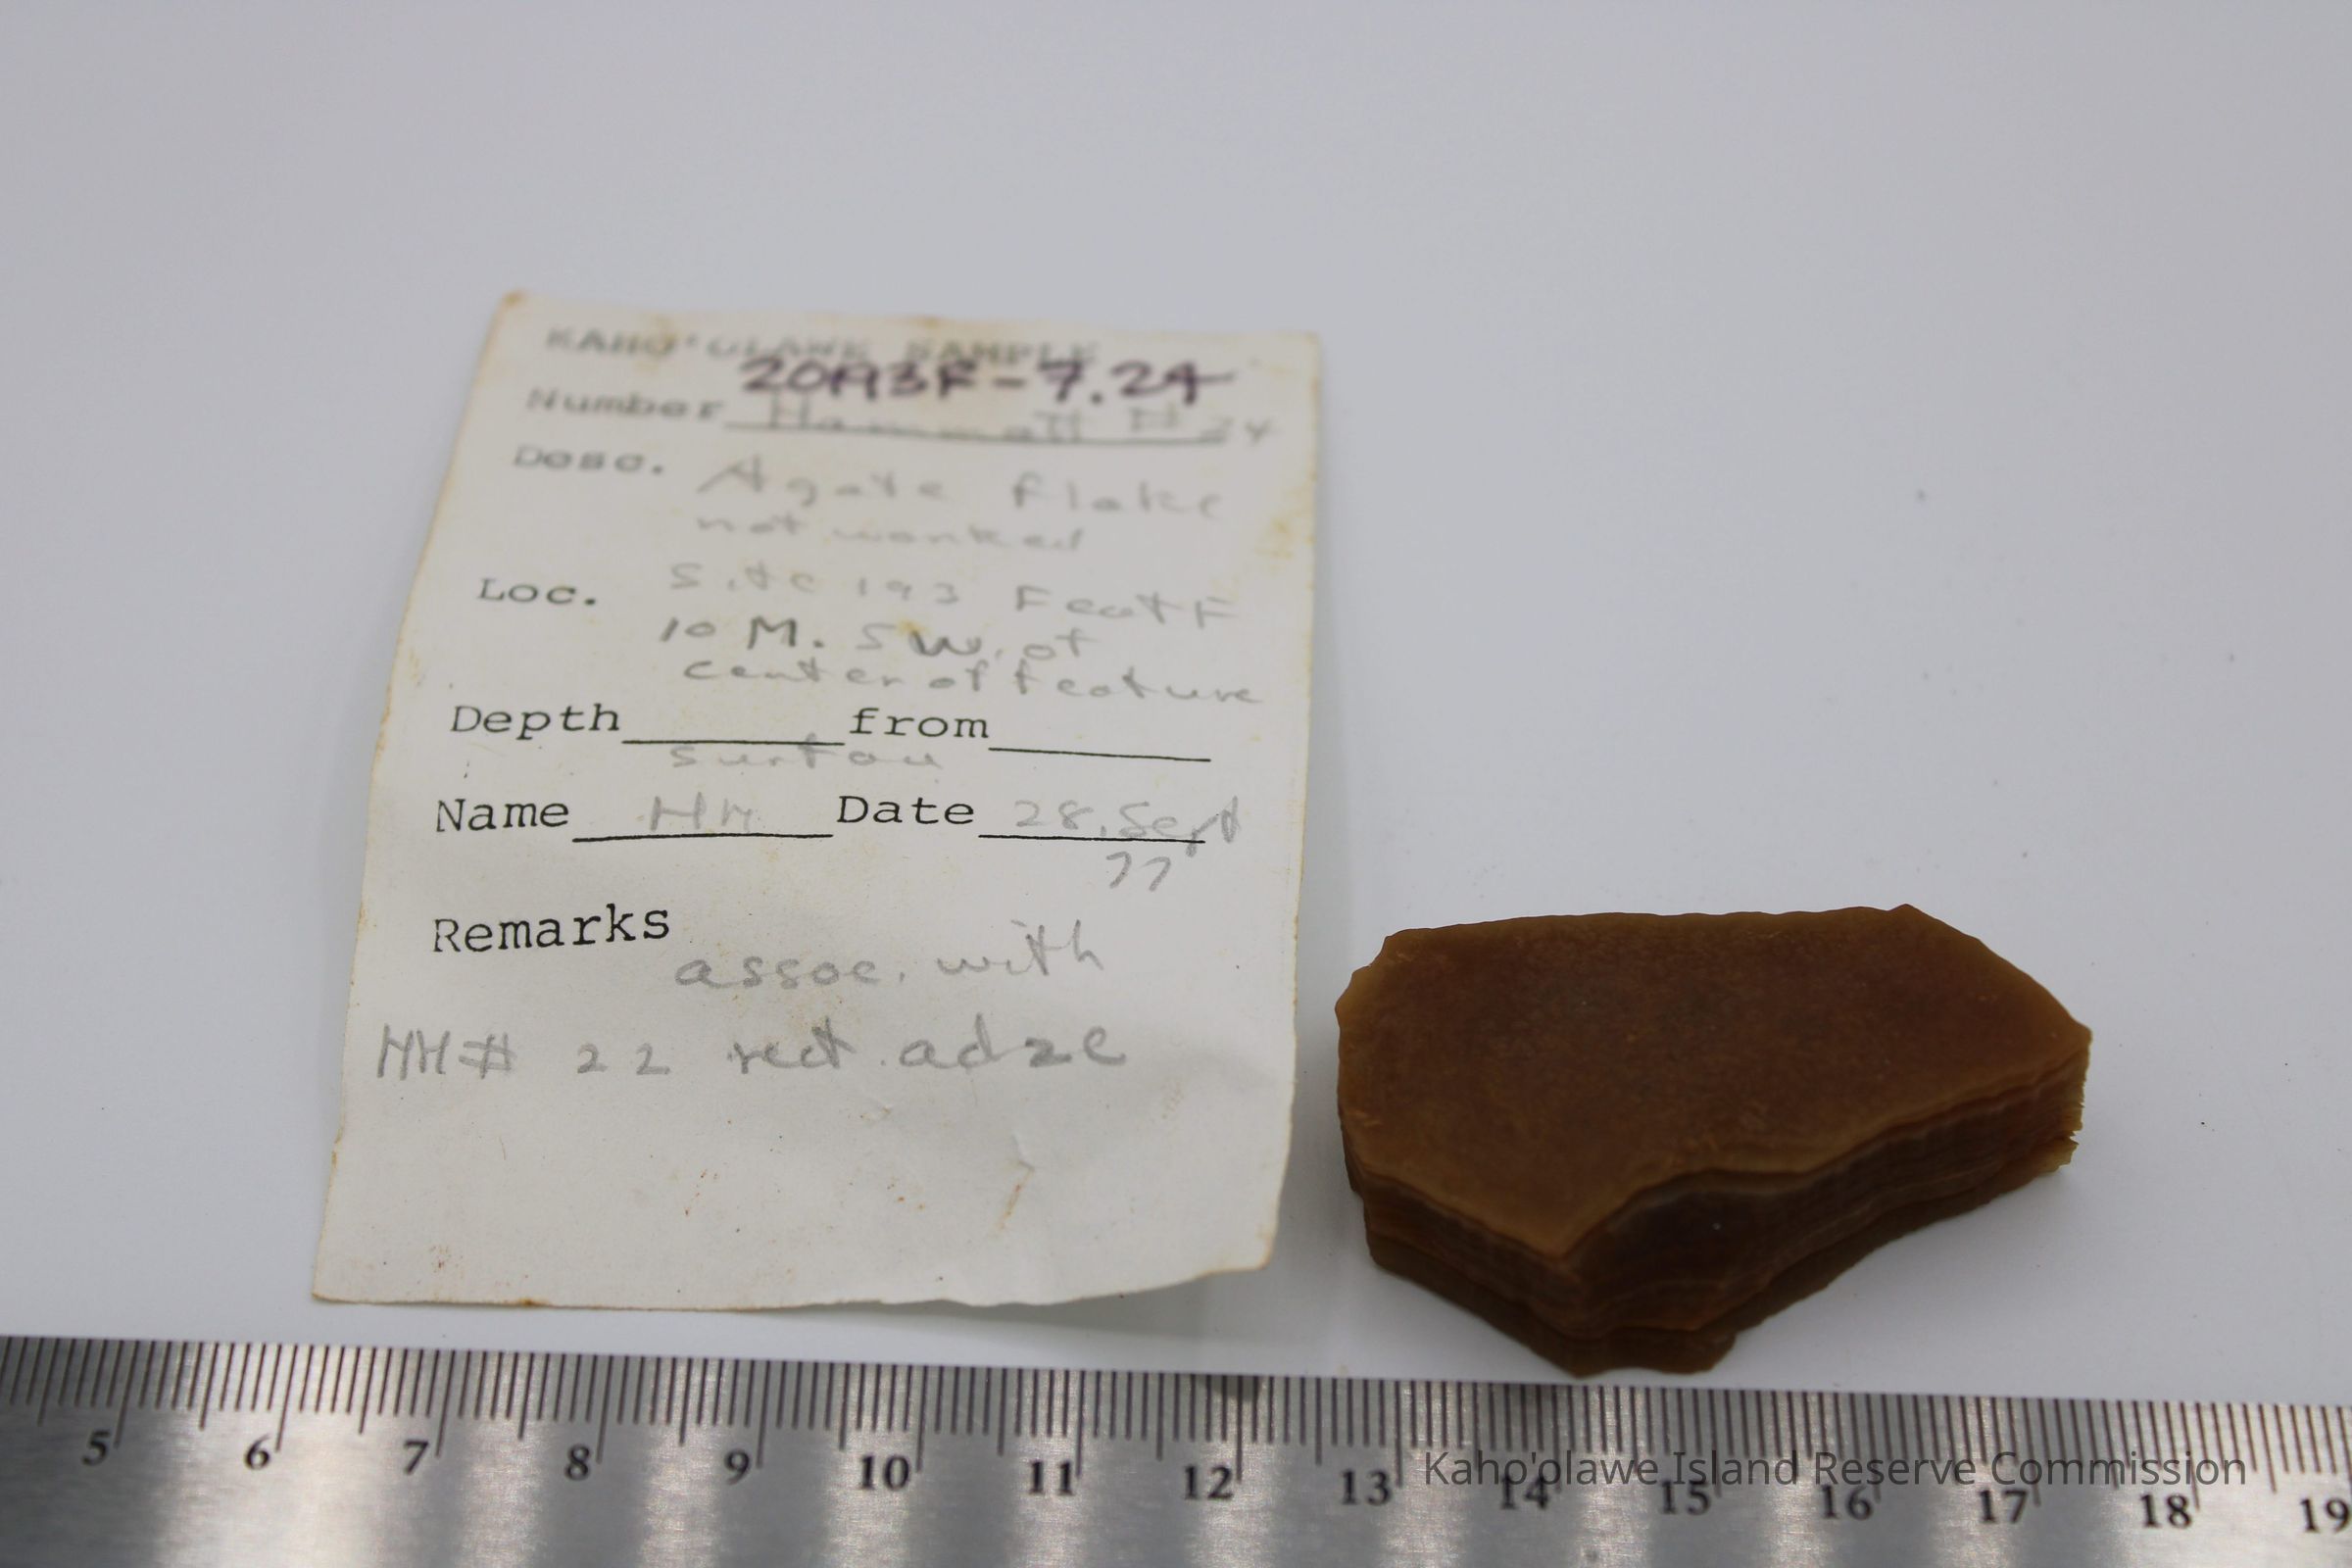 KAHO'OLAWE SAMPLE
20A93F-7.24
Number Hammatt #24
Desc. Agate flake
not worked
Loc. Site 193 Feat F
10 M. SW. of
center of feature
Depth from
surface
Name HH Date 28. Sept
77
Remarks
assoc. with
HH# 22 rect. adze
5 6 7 8 9 10 11 12 13 14 15 16 17 18 19
Kaho'olawe Island Reserve Commission